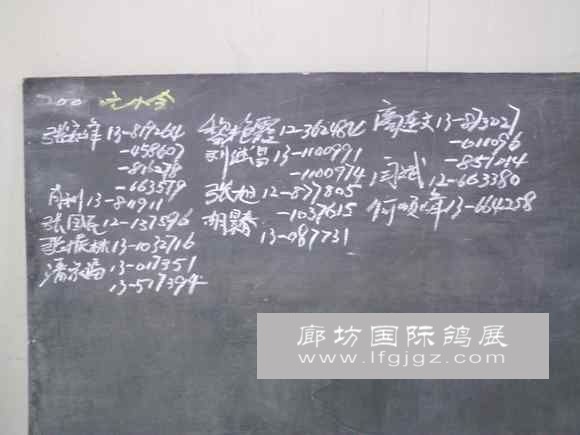 200
张永年 13-819264
-458607
-816278
-663579
肖刚 13-811911
张国民 12-137596
张振林 13-1032716
潘永福 13-017351
13-517394
黎艳霞 12-362484
刘继昌 13-1100991
-1100974
张旭 12-877805
-1037615
胡
13-087731
高连文 13-873027
-011096
-851014
闫斌 12-663380
何顺年 13-664258
廊坊国际鸽展
www.lfgjgz.com